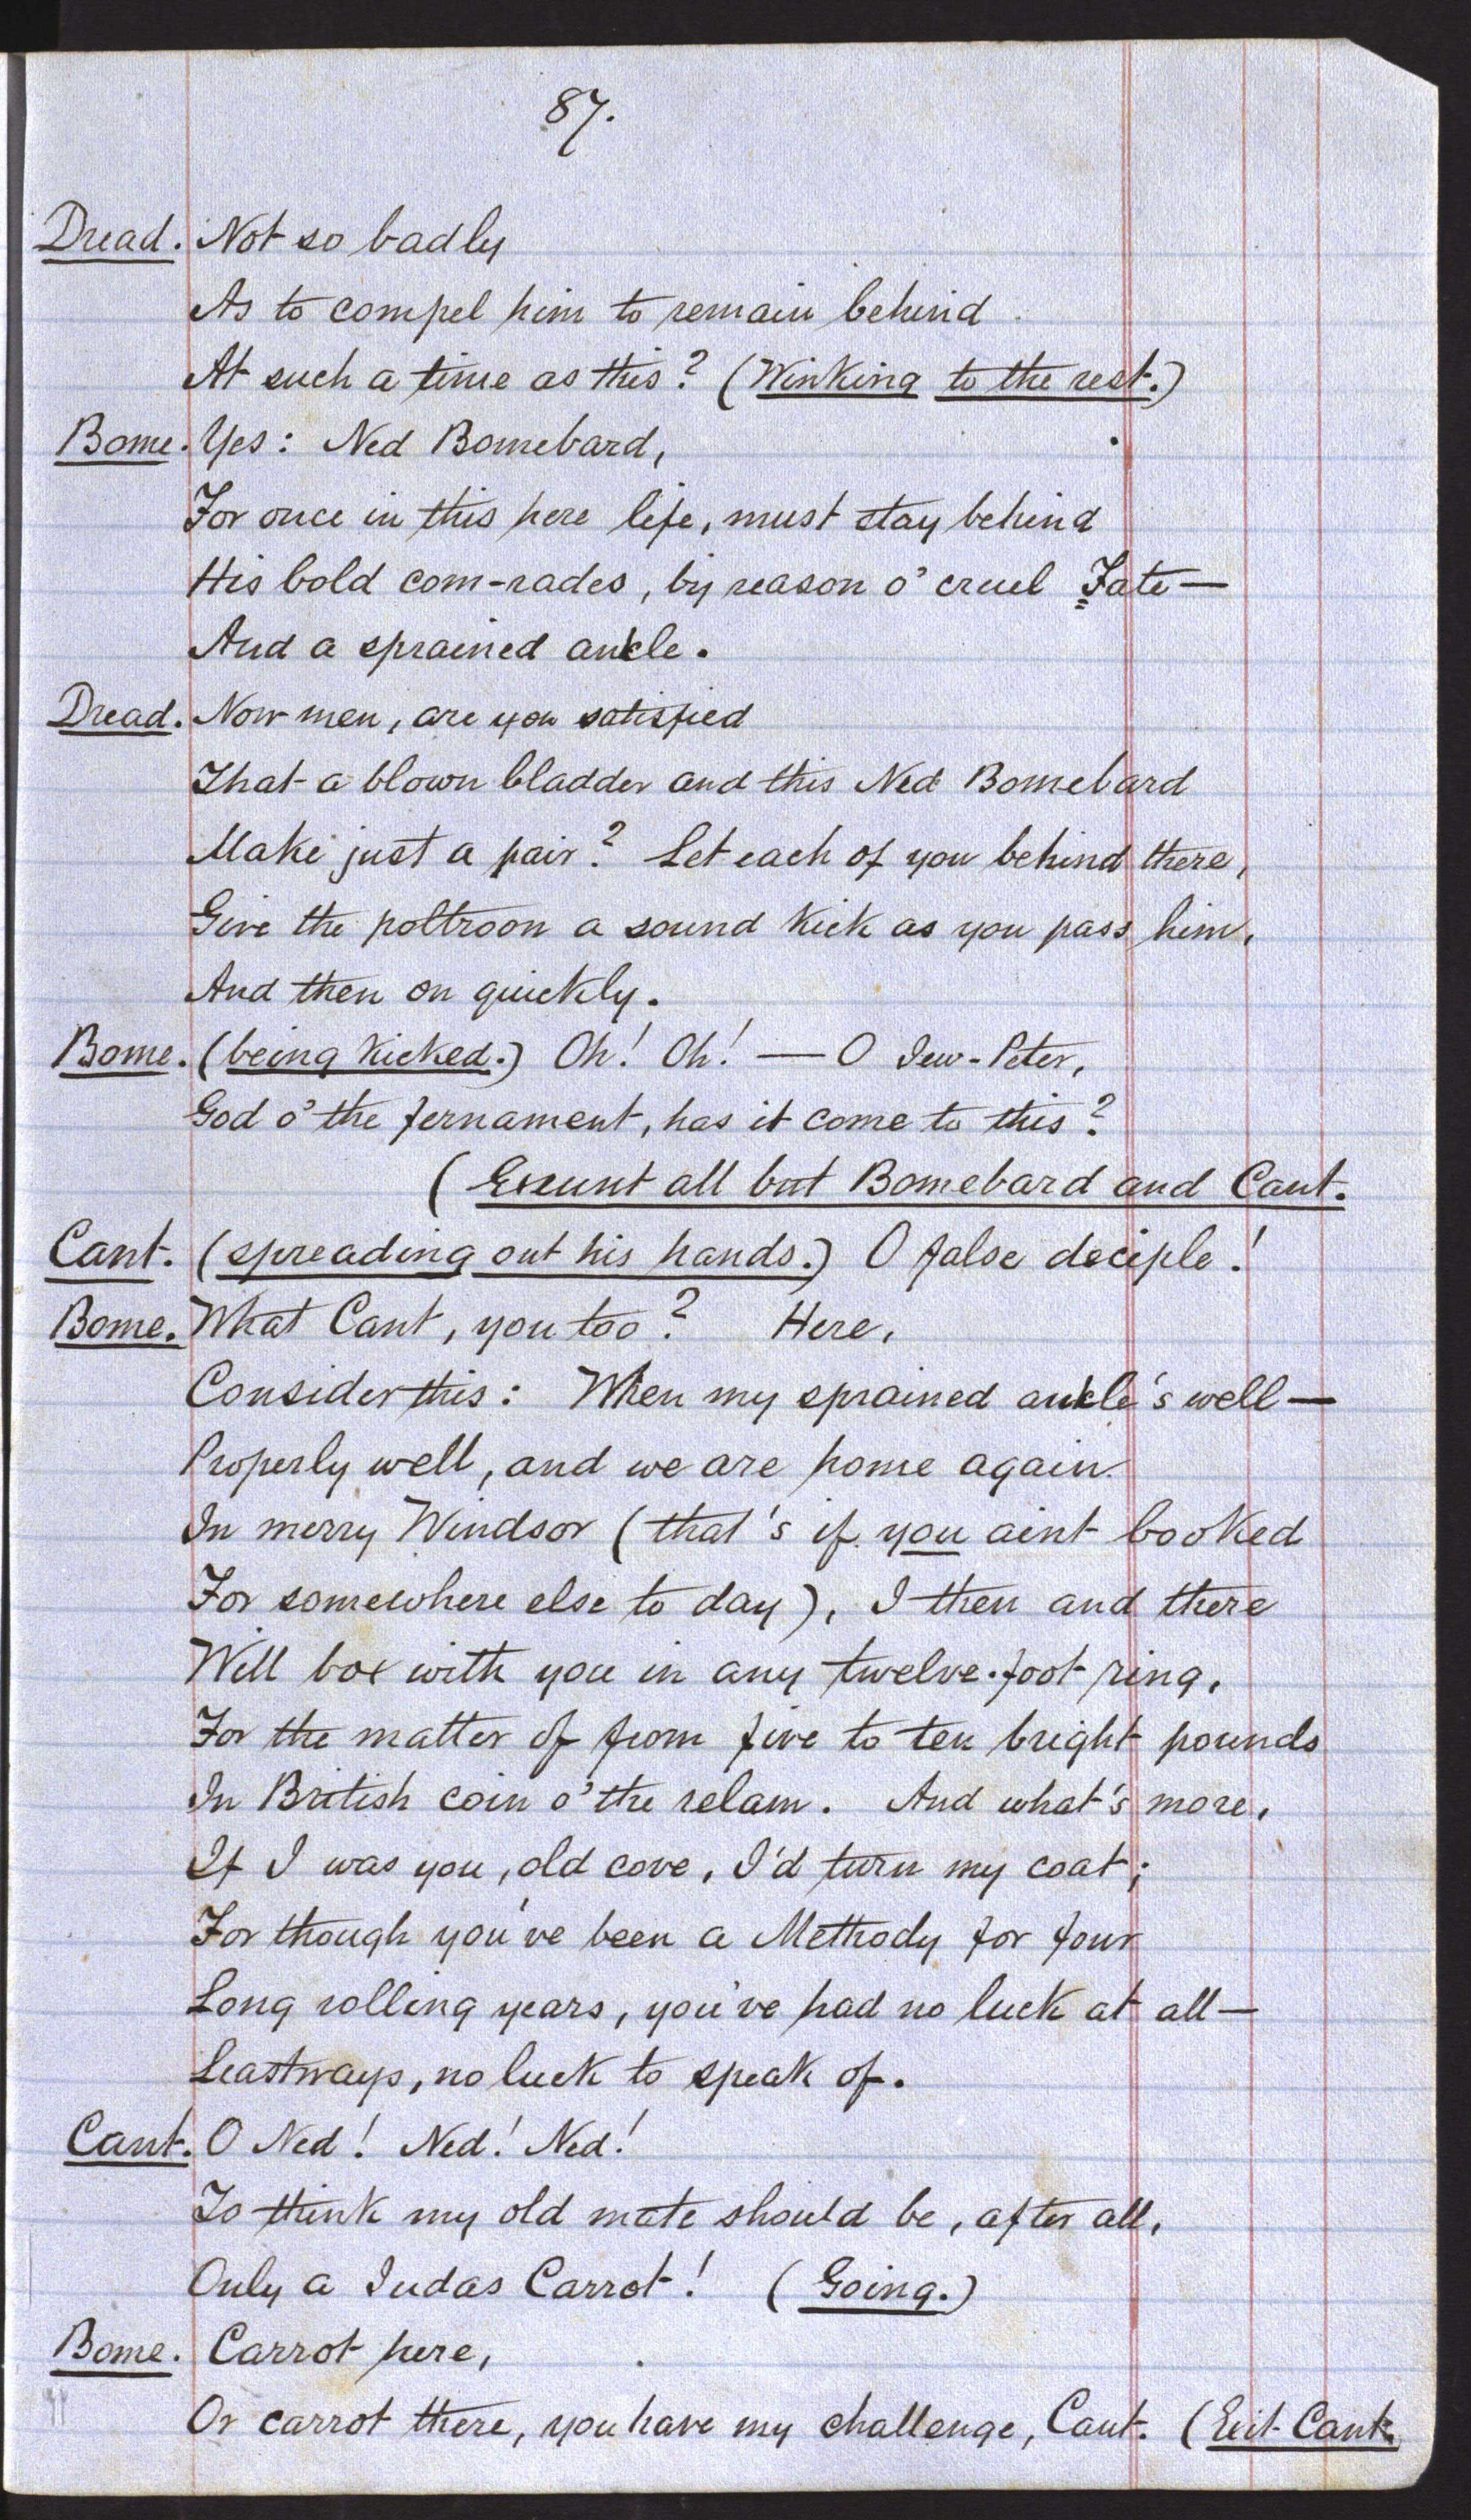 87.
Dread. Not so badly
As to compel him to remain behind
At such a time as this? (Winking to the rest.)
Bome. Yes: Ned Bomebard,
For once in this here life, must stay behind
His bold com-rades, by reason o' cruel Fate—
And a sprained ankle.
Dread. Now men, are you satisfied
That a blown bladder and this Ned Bomebard
Make just a pair? Let each of you behind there,
Give the poltroon a sound kick as you pass him,
And then on quickly.
Bome. (being kicked.) Oh! Oh! — O Jew-Peter,
God o' the fernament, has it come to this?
(Exeunt all but Bomebard and Cant.
Cant. (spreading out his hands.) O false deciple!
Bome. What Cant, you too? Here,
Consider this: When my sprained ankle's well—
Properly well, and we are home again
In merry Windsor (that's if you aint booked
For somewhere else to day), I then and there
Will box with you in any twelve-foot ring,
For the matter of from five to ten bright pounds
In British coin o' the relam. And what's more,
If I was you, old cove, I'd turn my coat;
For though you've been a Methody for four
Long rolling years, you've had no luck at all—
Leastways, no luck to speak of.
Cant. O Ned! Ned! Ned!
To think my old mate should be, after all,
Only a Judas Carrot! (Going.)
Bome. Carrot here,
Or carrot there, you have my challenge, Cant. (Exit Cant.